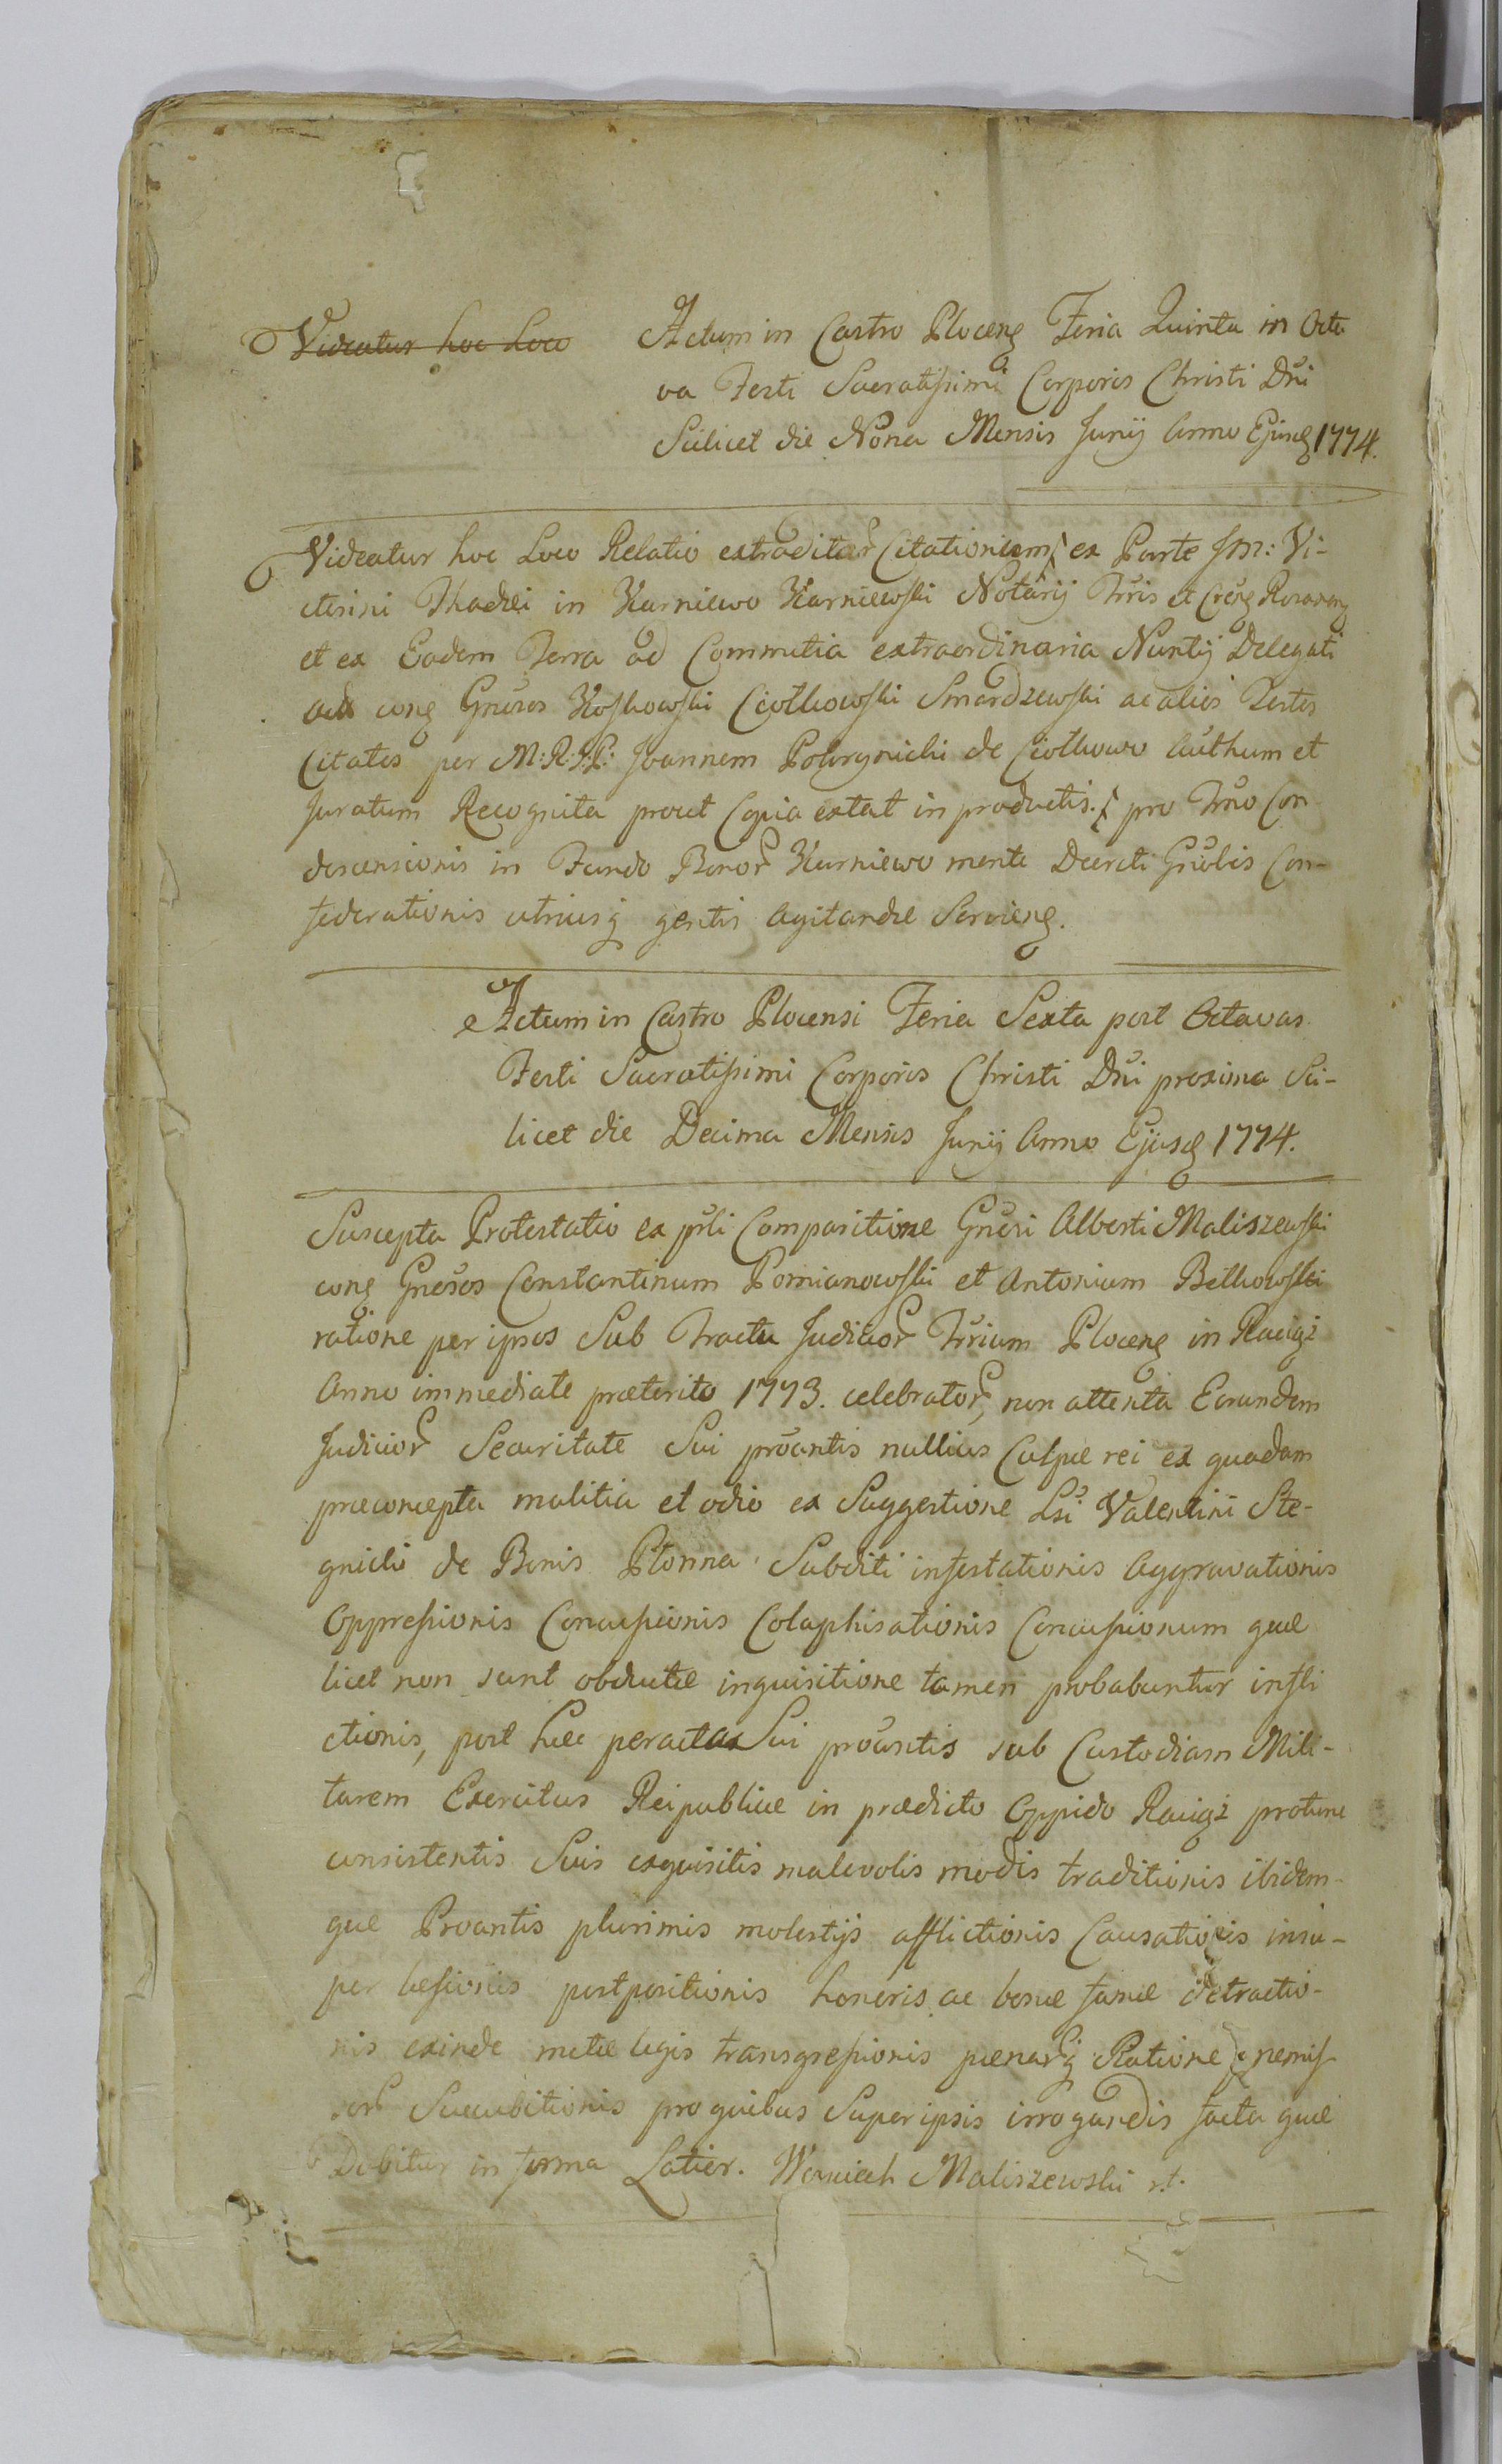 Videatur hoc Loco
Actum in Castro Ploceng Feria Quinta in Octa
va Festi Sacratissimi Corporis Christi Dni
Scilicet die Nona Mensis Junij Anno Ejusd 1774.
Videatur hoc Loco Relatio extraditar Citationum ex Parte JM: Vi-
ctorini Thadei in Karniewo Karniewski Notarij Tris et Creng Rozaneng
et ex Eadem Terra ad Commitia extraordinaria Nuntij Delegati
cong Gnusos Koskowski Ciołkowski Smardzewski ac alios Testes
Citatos per M:R:J:P: Joannem de Ciołkowo Authum et
Juratum Recognita prout Copia extat in productis. pro Trno Con
descensionis in Fundo Bonor Karniewo mente Decreti Gnolis Con-
federationis utriusq gentis Agitandæ Servieng.
Actum in Castro Plocensi Feria Sexta post Octavas
Festi Sacratissimi Corporis Christi Dni proxima Sci-
licet die Decima Mensis Junij Anno Ejusd 1774.
Suscepta Protestatio ex pnli Comparitione Gnosi Alberti Maliszewski
cong Gnosos Constantinum Pomianowski et Antonium Bełkowski
ratione per ipsos Sub Tractu Judicior Trrium Ploceng in Raciąż
Anno immediate præterito 1773. celebrator, non attenta Eorundem
Judicior Securitate Sui proantis nullius Culpæ rei ex quadam
præconcepta malitia et odio ex Suggestione Lsi Valentini Ste-
gnicki de Bonis Płonna Subditi infestationis Aggravationis
Oppressionis Concussionis Colaphisationis Concussionum quæ
licet non sunt obductæ inquisitione tamen probabuntur infli
ctionis, post hæc peracta Sui proantis sub Custodiam Mili-
tarem Exercitus Reipublicæ in prædicto Oppido Raciąż protunc
consistentis Suis exquisitis malevolis modis traditionis ibidem-
que Proantis plurimis molestijs afflictionis Causationis insu-
per læsionis postpositionis honoris ac bonæ famæ detractio-
nis exinde metæ legis transgressionis pænarq Ratione
Succubitionis pro quibus Super ipsis irrogandis facta quæ
Dabitur in forma Latior. Woyciech Maliszewski